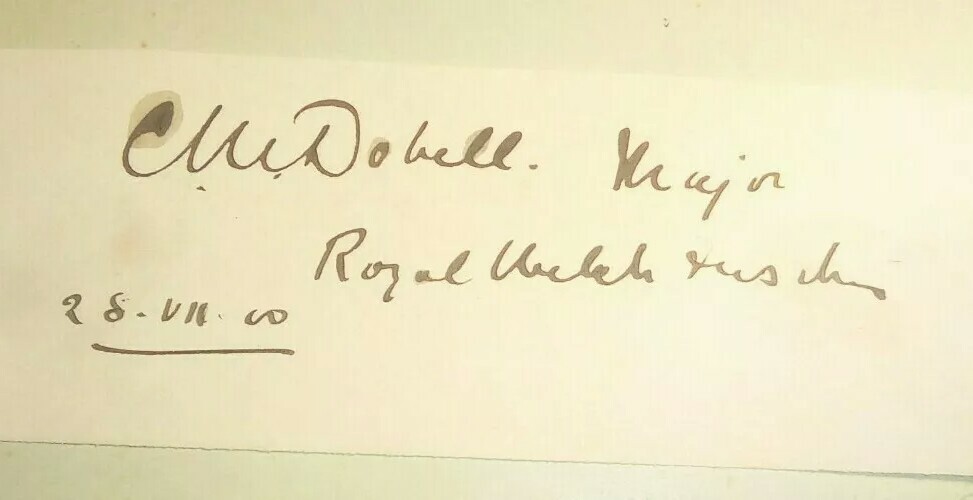 C.M. Dobell. Major
Royal Welsh Fusiliers
28.VII.00